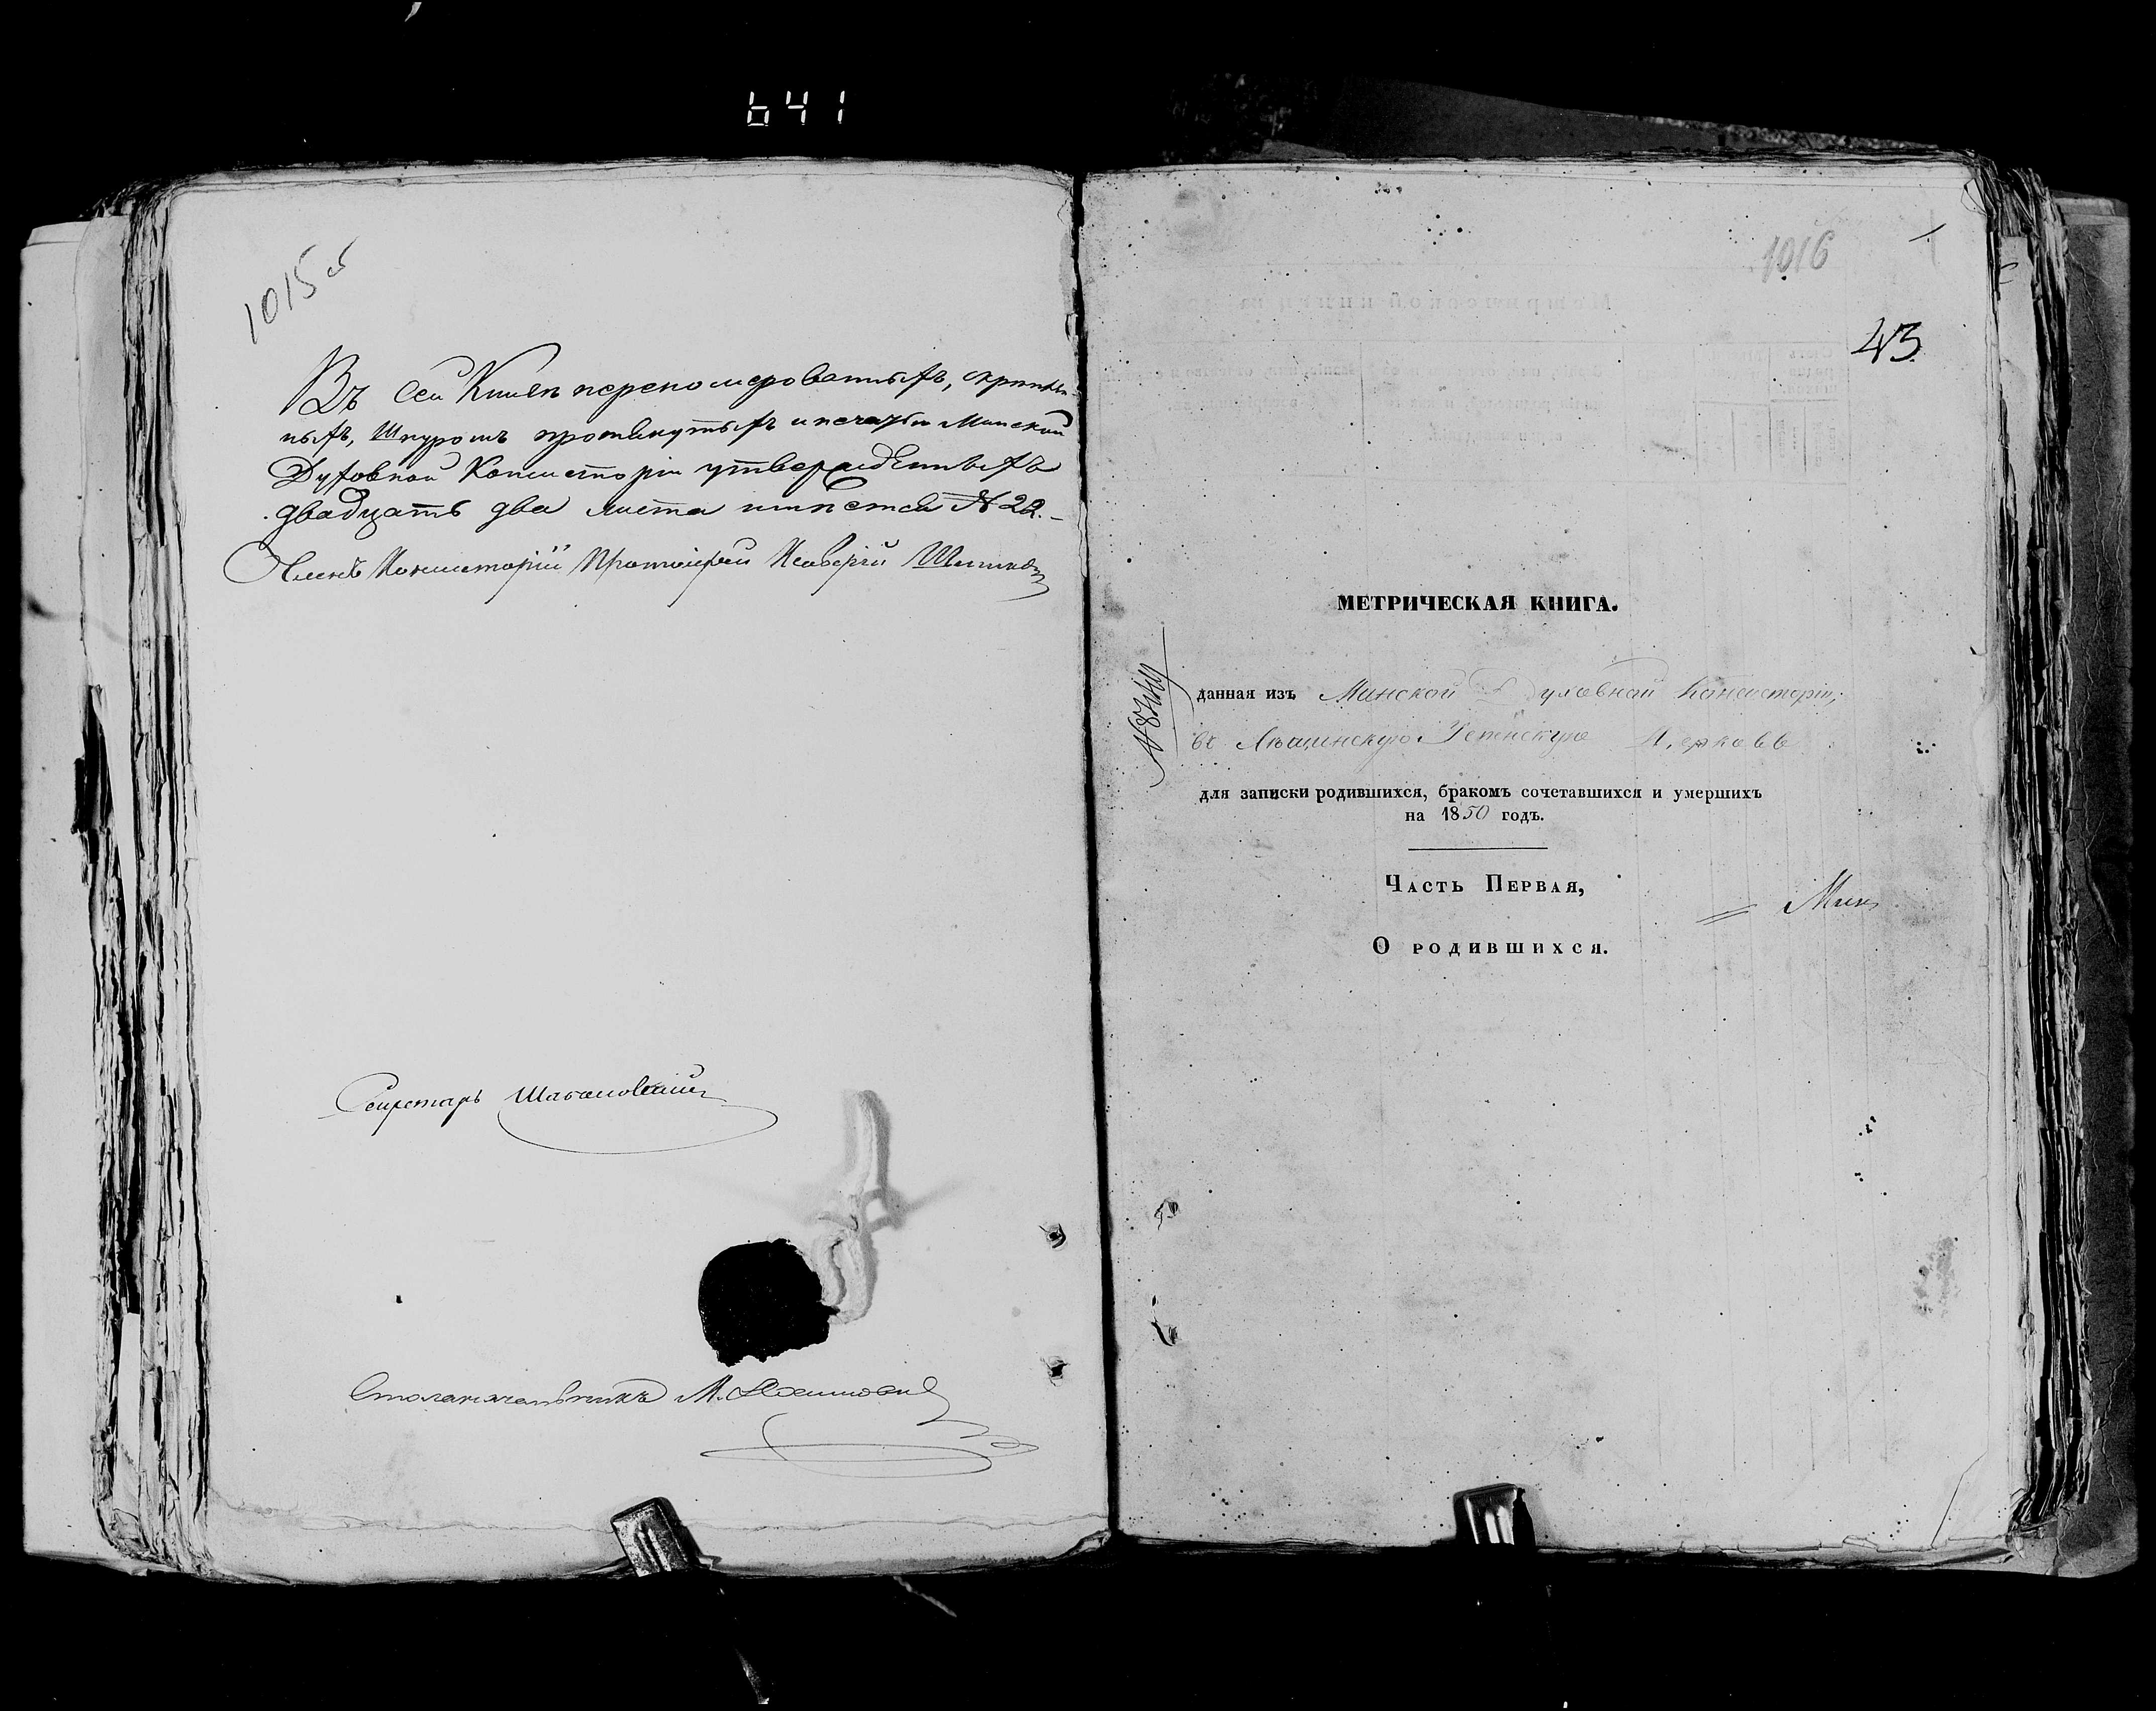 641
1015 об
Въ сей Книгѣ перепомерованныхъ, скрѣплен-
ныхъ, шнуромъ протянутыхъ и печатью Минской
Духовной Консисторіи утвержденныхъ
двадцать два листа имѣется № 22.–
Членъ Консисторіи Протоіерей
Секретарь
Столоначальникъ М.
1016
43
МЕТРИЧЕСКАЯ КНИГА.
данная изъ Минской Духовной Консисторіи,
въ Церковь
для записки родившихся, бракомъ сочетавшихся и умершихъ
на 1850 годъ.
Часть Первая,
Мин
О родившихся.